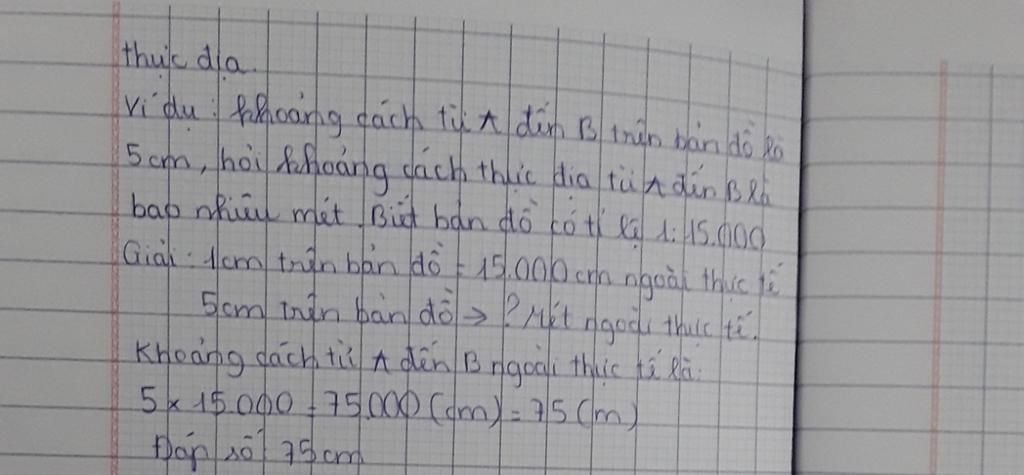 thực địa.
Ví dụ: Khoảng cách từ A đến B trên bản đồ là
5cm, hỏi khoảng cách thực địa từ A đến B là
bao nhiêu mét. Biết bản đồ có tỉ lệ 1:15.000
Giải: 1cm trên bản đồ = 15.000 cm ngoài thực tế
5cm trên bản đồ → ? Mét ngoài thực tế.
Khoảng cách từ A đến B ngoài thực tế là:
5 x 15.000 = 75.000 (cm) = 75 (m)
Đáp số 75 cm